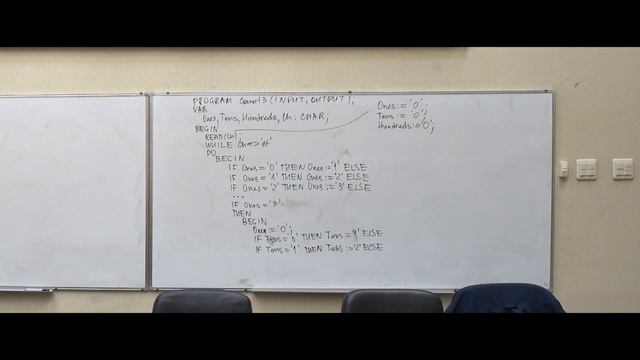 PROGRAM Count3 (INPUT, OUTPUT);
VAR
Ones, Tens, Hundreds, Ch: CHAR;
BEGIN
Ones := '0';
Tens := '0';
Hundreds := '0';
READ(Ch);
WHILE Ch <> '#'
DO
BEGIN
IF Ones = '0' THEN Ones := '1' ELSE
IF Ones = '1' THEN Ones := '2' ELSE
IF Ones = '2' THEN Ones := '3' ELSE
...
IF Ones = '9'
THEN
BEGIN
Ones := '0';
IF Tens = '0' THEN Tens := '1' ELSE
IF Tens = '1' THEN Tens := '2' ELSE